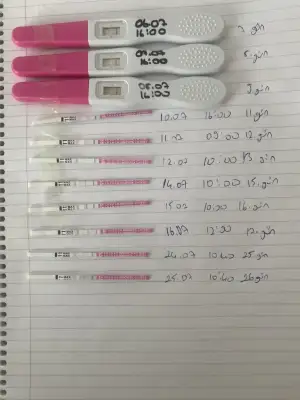 06.07 16:00
09.07 16:00
9.gün
10.07 16:00 11.gün
11.07 09:00 12.gün
12.07 10:00 13.gün
14.07 10:00 15.gün
15.07 10:00 16.gün
16.07 12:00
24.07 10:40 25.gün
25.07 10:40 26.gün